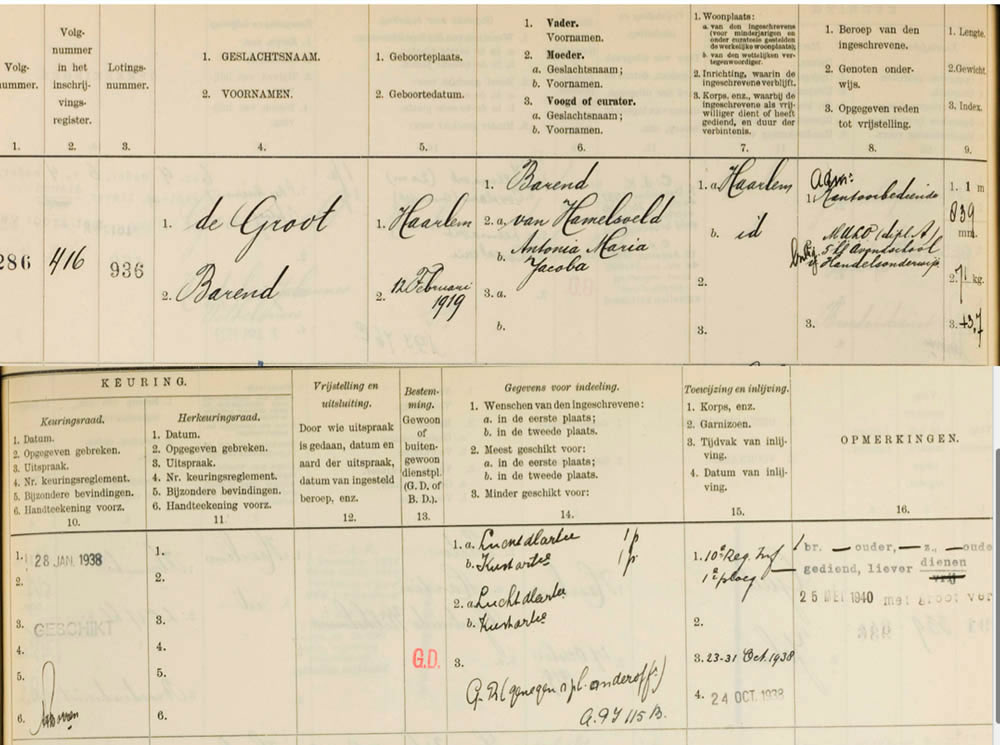 Volg-
nummer.
1.
Volg-
nummer
in het
inschrij-
vings-
register.
2.
Lotings-
nummer.
3.
1. GESLACHTSNAAM.
2. VOORNAMEN.
4.
1. Geboorteplaats.
2. Geboortedatum.
5.
1. Vader.
Voornamen.
2. Moeder.
a. Geslachtsnaam;
b. Voornamen.
3. Voogd of curator.
a. Geslachtsnaam;
b. Voornamen.
6.
1. Woonplaats:
a. van den ingeschrevene
(voor minderjarigen en
onder curateele gestelden
de werkelijke woonplaats);
b. van den wettelijken ver-
tegenwoordiger.
2. Inrichting, waarin de
ingeschrevene verblijft.
3. Korps, enz., waarbij de
ingeschrevene als vrij-
williger dient of heeft
gediend, en duur der
verbintenis.
7.
1. Beroep van den
ingeschrevene.
2. Genoten onder-
wijs.
3. Opgegeven reden
tot vrijstelling.
8.
1. Lengte.
2. Gewicht.
3. Index.
9.
286
416
936
1. de Groot
2. Barend
1. Haarlem
2. 12 Februari
1919
1. Barend
2. a. van Hamelsveld
b. Antonia Maria
Jacoba
3. a.
b.
1. a. Haarlem
b. id
2.
3.
adm:
1. Kantoorbediende
MULO (dipl A)
Avondschool
Handelsonderwijs
3.
1. 1 m
839
mm.
2. 71 kg.
3. +3,7
KEURING.
Keuringsraad.
1. Datum.
2. Opgegeven gebreken.
3. Uitspraak.
4. Nr. keuringsreglement.
5. Bijzondere bevindingen.
6. Handteekening voorz.
10.
Herkeuringsraad.
1. Datum.
2. Opgegeven gebreken.
3. Uitspraak.
4. Nr. keuringsreglement.
5. Bijzondere bevindingen.
6. Handteekening voorz.
11.
Vrijstelling en
uitsluiting.
Door wie uitspraak
is gedaan, datum en
aard der uitspraak,
datum van ingesteld
beroep, enz.
12.
Bestem-
ming.
Gewoon
of
buiten-
gewoon
dienstpl.
(G. D. of
B. D.).
13.
Gegevens voor indeeling.
1. Wenschen van den ingeschrevene:
a. in de eerste plaats;
b. in de tweede plaats.
2. Meest geschikt voor:
a. in de eerste plaats;
b. in de tweede plaats.
3. Minder geschikt voor:
14.
Toewijzing en inlijving.
1. Korps, enz.
2. Garnizoen.
3. Tijdvak van inlij-
ving.
4. Datum van inlij-
ving.
15.
OPMERKINGEN.
16.
1. 28 JAN. 1938
2.
3. GESCHIKT
4.
5.
6.
1.
2.
3.
4.
5.
6.
G.D.
1. a. Luchtdlartie 1p
b. Kustartie 1p
2. a. Luchtdlartie
b. Kustartie
3.
(genegen pl. onderoff.)
1. 10e Reg. Inf
1e ploeg
2.
3. 23-31 Oct. 1938
4. 24 OCT. 1938
br. — ouder, — z., — oude
— gediend, liever dienen
vrij
25 MEI 1940 met groot ver